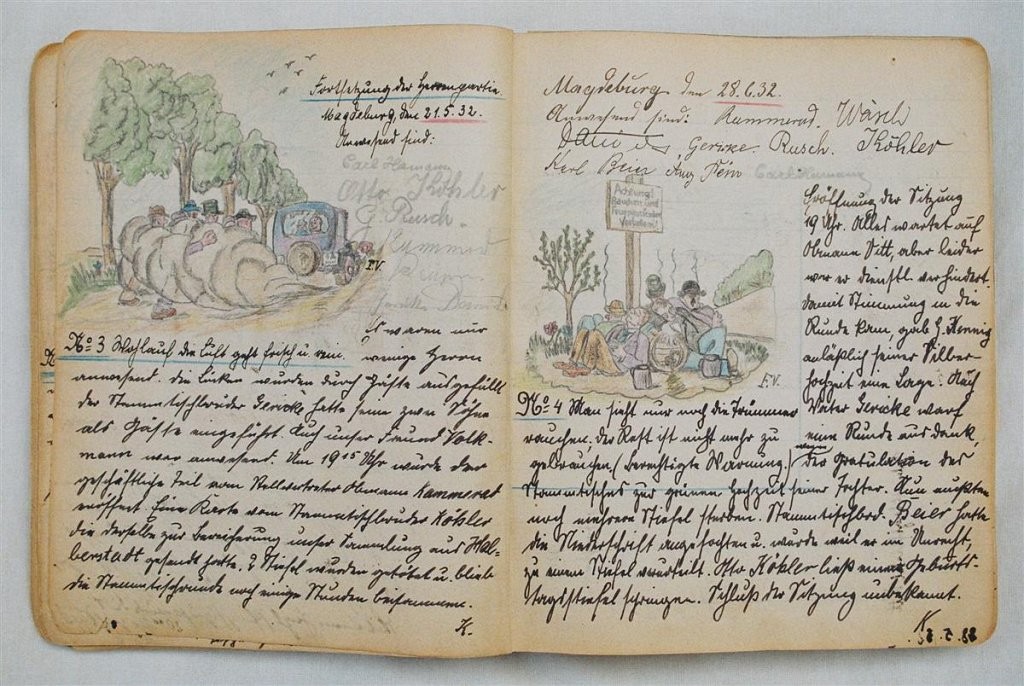 Fortsetzung der Herrenpartie
Magdeburg, den 21.5.32.
Anwesend sind:
Carl Hamann
Otto Köhler
G. Rusch.
Kummerad
Gericke
F.V.
Es waren nur
No 3 Wohlauf die Luft geht frisch u. rein. wenige Herren
anwesend. Die Lücken wurden durch Gäste ausgefüllt
der Stammtischbruder Gericke hatte seine zwei Söhne
als Gäste eingeführt. Auch unser Freund Volk-
mann war anwesend. Um 19 15 Uhr wurde der
geschäftliche Teil vom Stellvertreter Obmann Kammerad
eröffnet. Eine Karte vom Stammtischbruder Köhler
die derselbe zur Bereicherung unser Sammlung aus Hal-
berstadt gesandt hatte. 2 Stiefel wurden getötet u. blieb
die Stammtischrunde noch einige Stunden beisammen.
K.
Magdeburg den 28.6.32.
Anwesend sind: Kummerad. Wäsch
Gericke. Rusch. Köhler
Karl Beier Carl Hamann
Achtung!
Rauchen und
Verboten!
Eröffnung der Sitzung
19 Uhr. Alles wartet auf
Obmann Sitt, aber leider
war er dienstl. verhindert.
Damit Stimmung in die
Runde kam, gab H. Hennig
anläßlich seiner Silber-
hochzeit eine Lage. Auch
F.V.
No 4 Man sieht nur noch die Trümmer Vater Gericke warf
rauchen. Der Rest ist nicht mehr zu eine Runde aus dank,
gebrauchen. (Berechtigte Warnung.) wegen der Gratulation des
Stammtisches zur grünen Hochzeit seiner Tochter. Nun mußten
noch mehrere Stiefel sterben. Stammtischbrd. Beier hatte
die Niederschrift angefochten u. wurde weil er im Unrecht,
zu einem Stiefel verurteilt. Otto Köhler ließ einen Geburts-
tagsstiefel springen. Schluß der Sitzung unbekannt.
K